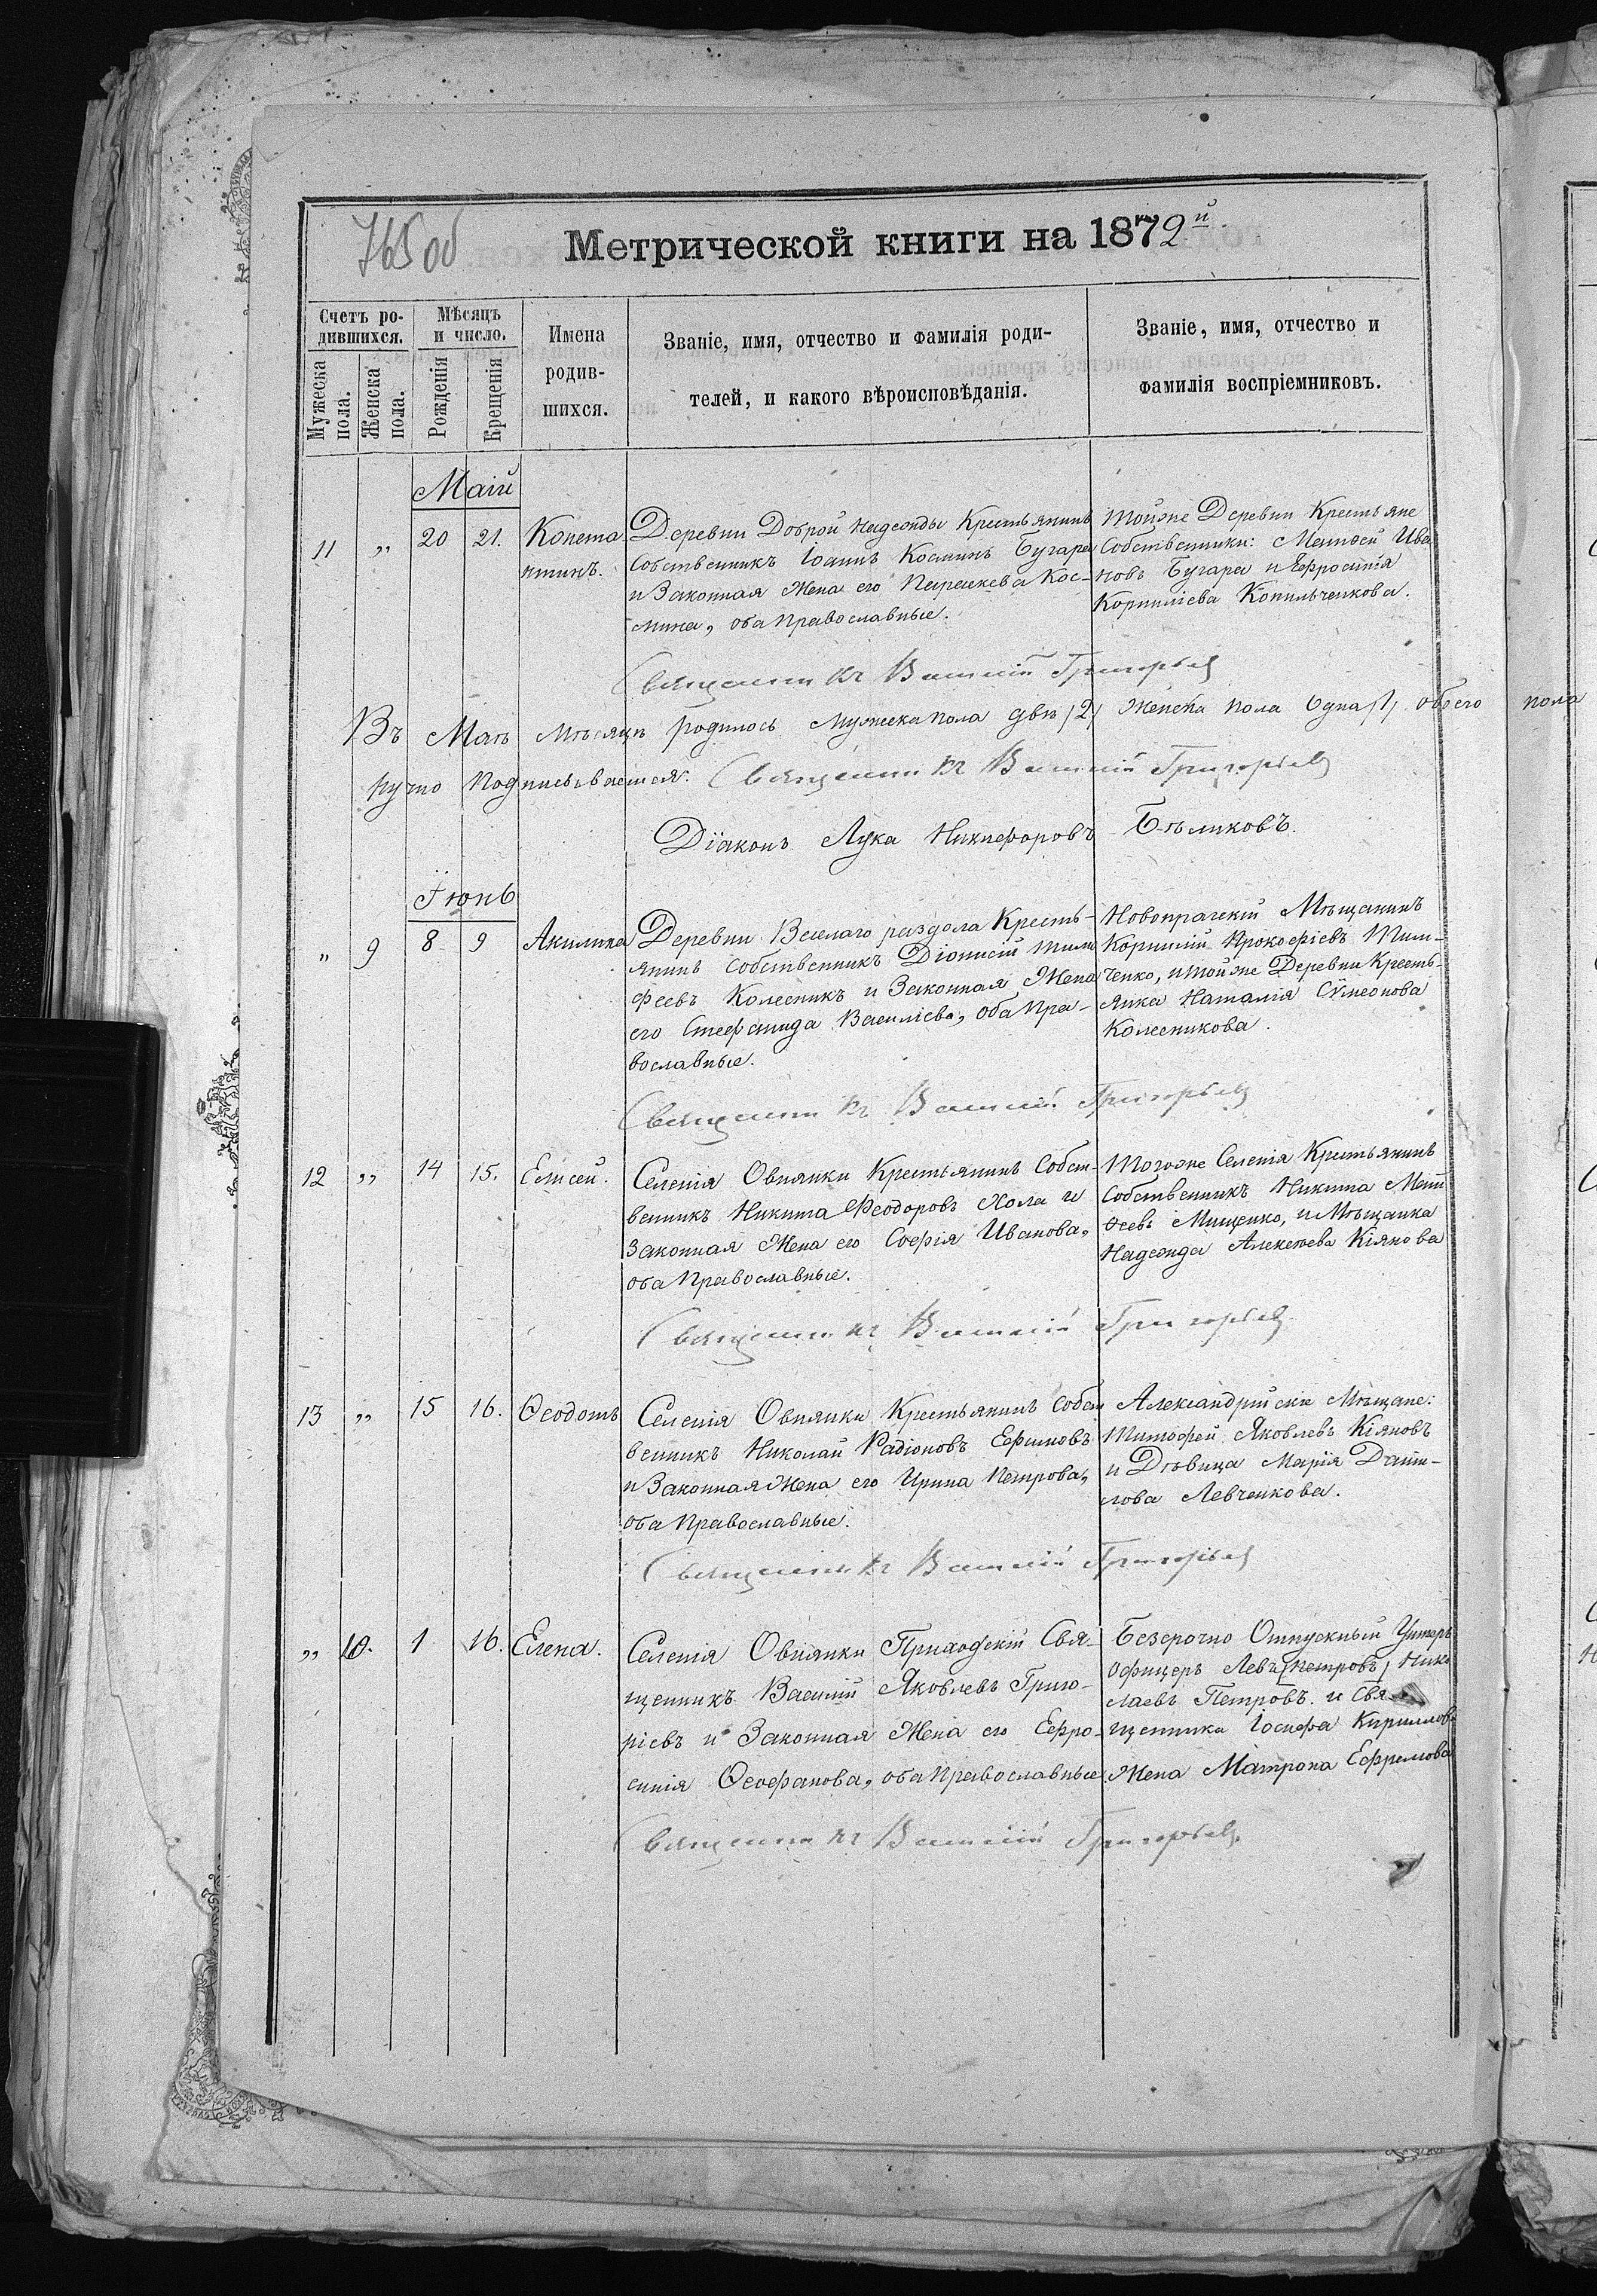 765 об
Метрической книги на 1872й
Счетъ ро-
дившихся.
Мужеска
пола.
Женска
пола.
Мѣсяцъ
и число.
Рожденія
Крещенія
Имена
родив-
шихся.
Званіе, имя, отчество и фамилія роди-
телей, и какого вѣроисповѣданія.
Званіе, имя, отчество и
фамилія воспріемниковъ.
Маій
11 „ 20 21. Конста
нтинъ.
Деревни Доброй Надежды Крестьянинъ
Собственникъ Іоаннъ Косминъ Бугара
и Законная Жена его Параскева Кос-
мина, оба православные.
Тойже Деревни Крестьяне
Собственники: Матѳей Ива
новъ Бугара и Ефросинія
Корниліева Копильченкова.
Священникъ Василій Григорьевъ
Въ Маѣ мѣсяцѣ родилось Мужска пола два /2/ Женска пола Одна /1/ обоего пола
Священникъ Василій Григорьевъ
Діаконъ Лука Никифоровъ Бѣликовъ.
Іюнь
„ 9 8 9 Акилина
Деревни Веселаго раздола Кресть-
янинъ Собственникъ Діонисій Тимо
феевъ Колесникъ и Законная Жена
его Стефанида Василіева, оба Пра-
вославные.
Новопражскій Мѣщанинъ
Корнилій Прокофіевъ Тим-
ченко, и тойже Деревни Кресть-
янка Наталія Сѵмеонова
Колесникова.
Священникъ Василій Григорьевъ
12 „ 14 15. Елисей.
Селенія Овнянки Крестьянинъ Собст-
венникъ Никита Феодоровъ Хола и
Законная Жена его Софія Иванова,
оба Православные.
Тогоже Селенія Крестьянинъ
Собственникъ Никита Мат
ѳеевъ Мищенко, и Мѣщанка
Надежда Алексѣева Кіянова
Священникъ Василій Григорьевъ
13 „ 15 16. Ѳеодотъ
Селенія Овнянки Крестьянинъ Собст
венникъ Николай Радіоновъ Ефимовъ
и Законная Жена его Ирина Петрова,
оба Православные.
Александрійскіе Мѣщане:
Тимофей Яковлевъ Кіяновъ
и Дѣвица Марія Дани-
лова Левченкова.
Священникъ Василій Григорьевъ
„ 10. 1 16. Елена.
Селенія Овнянки Приходскій Свя-
щенникъ Василій Яковлевъ Григо-
ріевъ и Законная Жена его Ефро-
синія Ѳеофанова, оба Православные
Безсрочно Отпускный Унтеръ
Офицеръ Левъ (Петровъ) Нико
лаевъ Петровъ. и Свя-
щенника Іосифа Кириллова
Жена Матрона Ефремова
Священникъ Василій Григорьевъ.